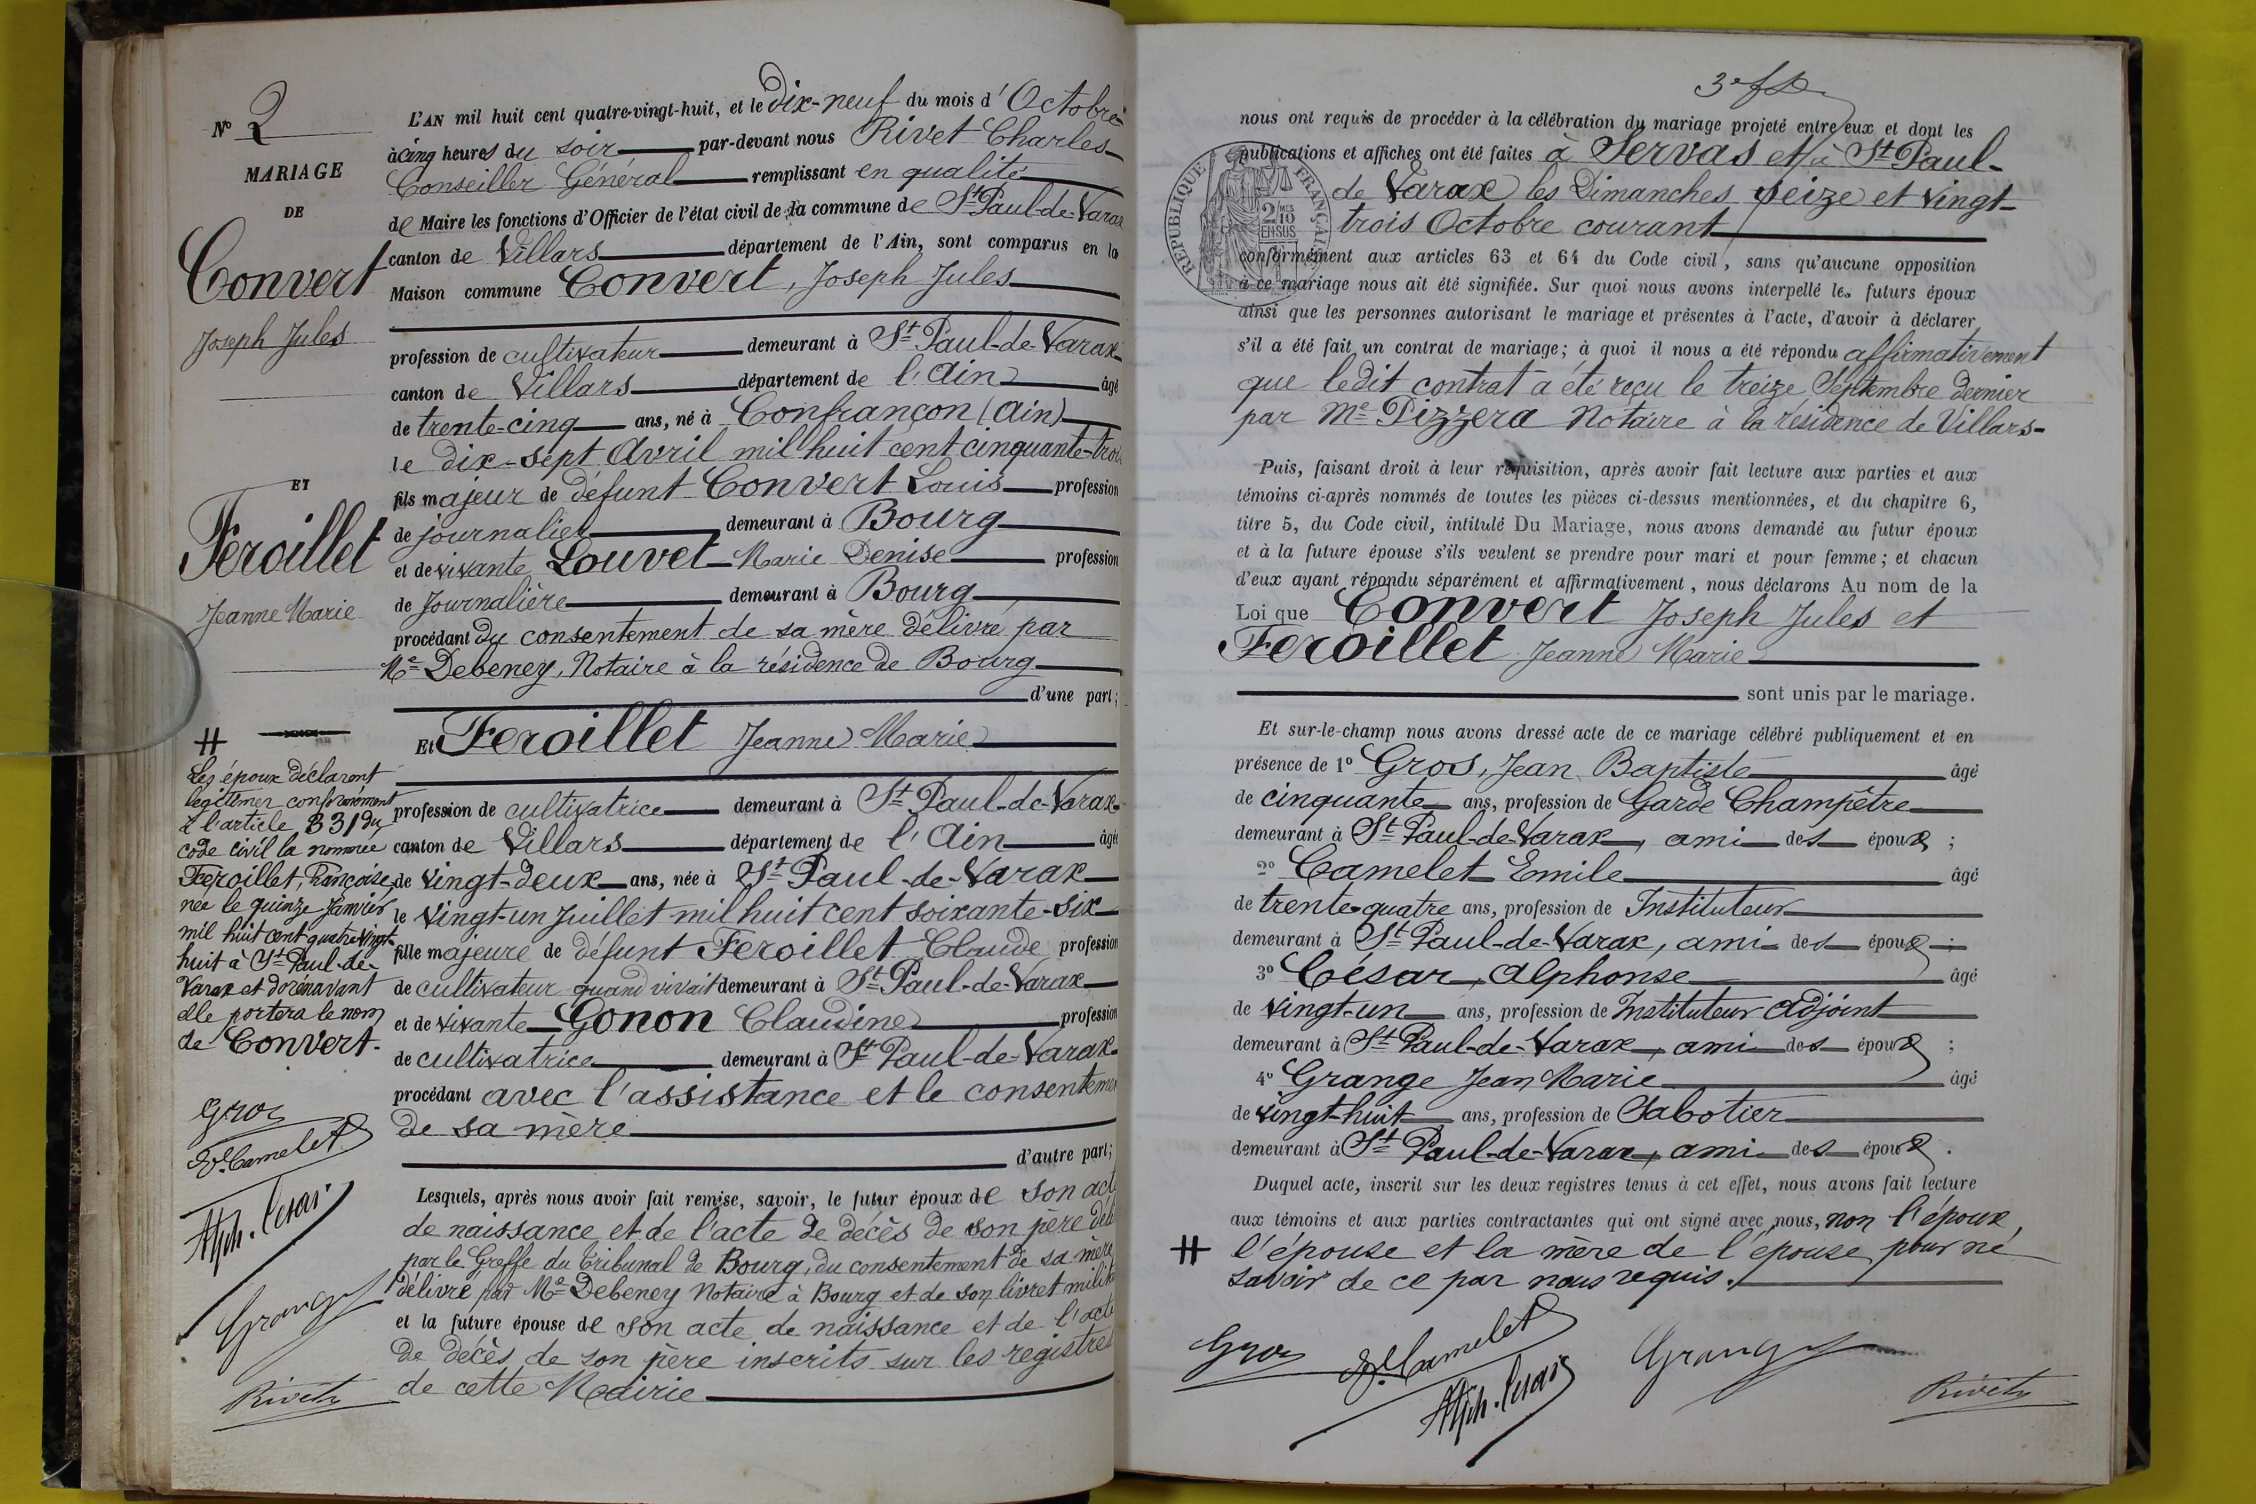 Nº 2
MARIAGE
DE
Convert
Joseph Jules
ET
Feroillet
Jeanne Marie
L'AN mil huit cent quatre-vingt-huit, et le dix-neuf du mois d'Octobre
à cinq heures du soir par-devant nous Rivet Charles
Conseiller Général remplissant en qualité
de Maire les fonctions d'Officier de l'état civil de la commune de St Paul-de-Varax
canton de Villars département de l'Ain, sont comparus en la
Maison commune Convert, Joseph Jules
profession de cultivateur demeurant à St Paul-de-Varax
canton de Villars département de l'Ain âgé
de trente-cinq ans, né à Confrançon (Ain)
le dix-sept Avril mil huit cent cinquante-trois
fils majeur de défunt Convert Louis profession
de journalier demeurant à Bourg
et de vivante Louvet Marie Denise profession
de Journalière demeurant à Bourg
procédant du consentement de sa mère délivré par
Me Debeney, Notaire à la résidence de Bourg
d'une part;
Et Feroillet Jeanne Marie
profession de cultivatrice demeurant à St Paul-de-Varax
canton de Villars département de l'Ain âgée
de vingt-deux ans, née à St Paul-de-Varax
le vingt-un Juillet mil huit cent soixante-six
fille majeure de défunt Feroillet Claude profession
de cultivateur quand vivait demeurant à St Paul-de-Varax
et de vivante Gonon Claudine profession
de cultivatrice demeurant à St Paul-de-Varax
procédant avec l'assistance et le consenteme
de sa mère
d'autre part;
Lesquels, après nous avoir fait remise, savoir, le futur époux de son acte
de naissance et de l'acte de décès de son père déli
par le Greffe du Tribunal de Bourg, du consentement de sa mère
délivré par Me Debeney Notaire à Bourg et de son livret milit
et la future épouse de son acte de naissance et de l'acte
de décès de son père inscrits sur les registres
de cette Mairie
Les époux déclarent
légitimer conformément
à l'article 331 du
code civil la nommée
Feroillet, Françoise,
née le quinze Janvier
mil huit cent quatre vingt-
huit à St Paul-de-
Varax et dorénavant
elle portera le nom
de Convert.
Gros
E. Camelet
Alph. César
Grange
Rivet
3e f
nous ont requis de procéder à la célébration du mariage projeté entre eux et dont les
publications et affiches ont été faites à Servas et à St Paul-
de Varax les Dimanches seize et vingt-
trois Octobre courant
RÉPUBLIQUE FRANÇAISE
2/10 MES
EN SUS
conformément aux articles 63 et 64 du Code civil, sans qu'aucune opposition
à ce mariage nous ait été signifiée. Sur quoi nous avons interpellé les futurs époux
ainsi que les personnes autorisant le mariage et présentes à l'acte, d'avoir à déclarer
s'il a été fait un contrat de mariage; à quoi il nous a été répondu affirmativement
que ledit contrat a été reçu le treize Septembre dernier
par Me Pizzera Notaire à la résidence de Villars-
Puis, faisant droit à leur réquisition, après avoir fait lecture aux parties et aux
témoins ci-après nommés de toutes les pièces ci-dessus mentionnées, et du chapitre 6,
titre 5, du Code civil, intitulé Du Mariage, nous avons demandé au futur époux
et à la future épouse s'ils veulent se prendre pour mari et pour femme; et chacun
d'eux ayant répondu séparément et affirmativement, nous déclarons Au nom de la
Loi que Convert Joseph Jules et
Feroillet Jeanne Marie
sont unis par le mariage.
Et sur-le-champ nous avons dressé acte de ce mariage célébré publiquement et en
présence de 1º Gros, Jean Baptiste âgé
de cinquante ans, profession de Garde Champêtre
demeurant à St Paul-de-Varax, ami des époux;
2º Camelet Emile âgé
de trente-quatre ans, profession de Instituteur
demeurant à St Paul-de-Varax, ami des époux;
3º César, Alphonse âgé
de vingt-un ans, profession de Instituteur Adjoint
demeurant à St Paul-de-Varax, ami des époux;
4º Grange Jean Marie âgé
de vingt-huit ans, profession de Sabotier
demeurant à St Paul-de-Varax, ami des époux.
Duquel acte, inscrit sur les deux registres tenus à cet effet, nous avons fait lecture
aux témoins et aux parties contractantes qui ont signé avec nous, non l'époux,
l'épouse et la mère de l'épouse pour ne
savoir de ce par nous requis.
Gros
E. Camelet
Alph. César
Grange
Rivet